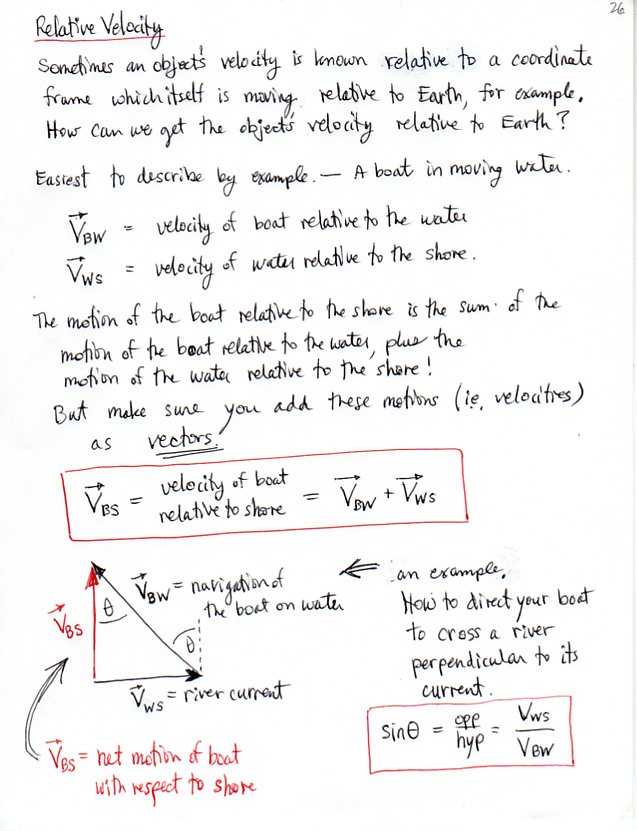 26
Relative Velocity
Sometimes an object's velocity is known relative to a coordinate
frame which itself is moving relative to Earth, for example.
How can we get the object's velocity relative to Earth?
Easiest to describe by example. — A boat in moving water.
V⃗BW = velocity of boat relative to the water
V⃗WS = velocity of water relative to the shore.
The motion of the boat relative to the shore is the sum of the
motion of the boat relative to the water, plus the
motion of the water relative to the shore!
But make sure you add these motions (i.e, velocities)
as vectors.
V⃗BS = velocity of boat relative to shore = V⃗BW + V⃗WS
V⃗BW = navigation of
the boat on water
θ
θ
V⃗BS
V⃗WS = river current
V⃗BS = net motion of boat
with respect to shore
⇐ an example.
How to direct your boat
to cross a river
perpendicular to its
current.
sinθ = opp/hyp = VWS/VBW